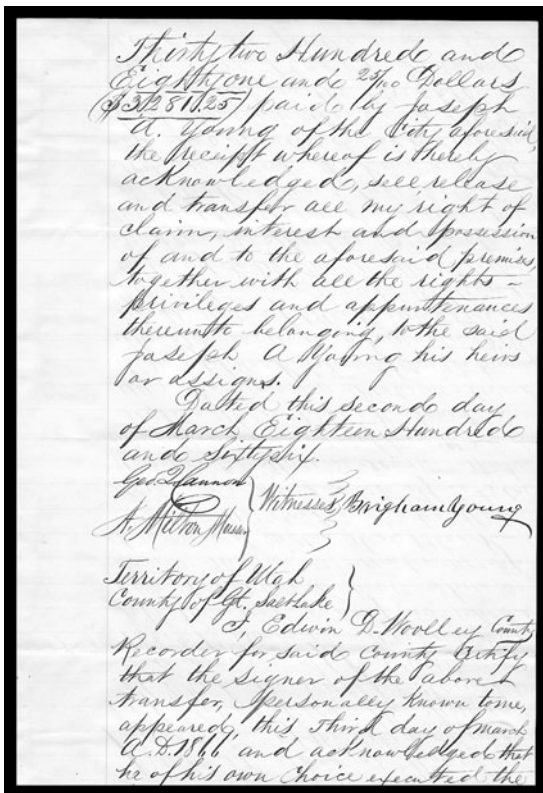 Thirty two Hundred and
Eighty one and 25/100 Dollars
($3,281.25) paid by Joseph
A. Young of the City aforesaid,
the receipt whereof is hereby
acknowledged, sell release
and transfer all my right of
claim, interest and possession
of and to the aforesaid premises,
together with all the rights –
privileges and appurtenances
thereunto belonging, to the said
Joseph A Young his heirs
or assigns.
Dated this second day
of March Eighteen Hundred
and sixty six.
Geo. Q. Cannon
A. Milton Musser
Witnesses
Brigham Young
Territory of Utah
County of Gt. Salt Lake
I, Edwin D. Woolley County
Recorder for said County Certify
that the signer of the above
transfer, personally known to me,
appeared, this Third day of March
A.D. 1866 and acknowledged that
he of his own choice executed the